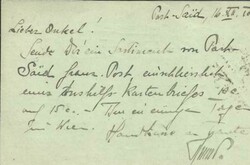 Port-Said, 16 XII
Lieber Onkel.
Sende Dir ein Sortiment von Port-
Said franz. Post, einschliesslich
eines Aushilfs-Kartenbriefes 10c.
auf 15c. - Bin in einigen Tagen
in Wien.